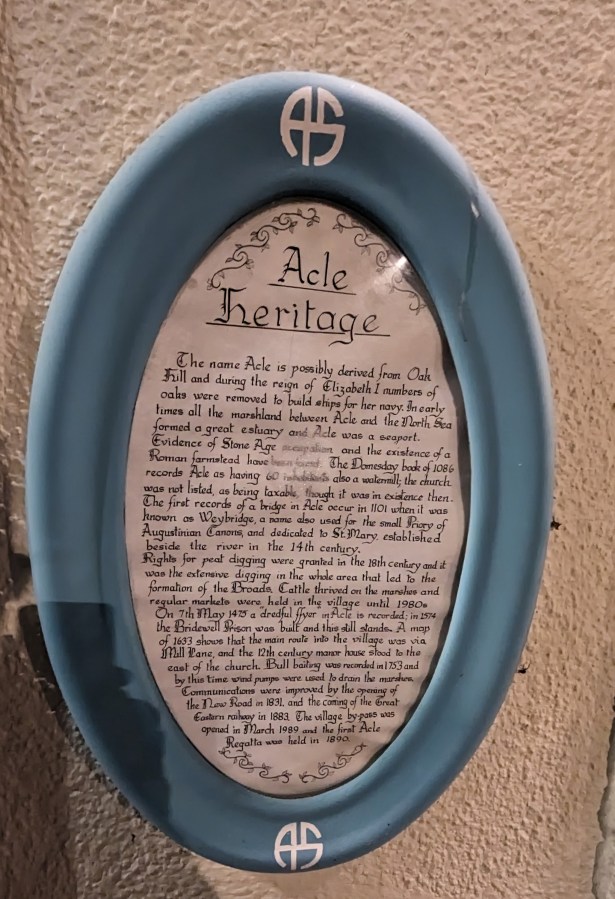 AS
Acle
Heritage
The name Acle is possibly derived from Oak
Hill and during the reign of Elizabeth I numbers of
oaks were removed to build ships for her navy. In early
times all the marshland between Acle and the North Sea
formed a great estuary and Acle was a seaport.
Evidence of Stone Age and the existence of a
Roman farmstead have been found. The Domesday book of 1086
records Acle as having 60 inhabitants also a watermill; the church
was not listed, as being taxable, though it was in existence then.
The first records of a bridge in Acle occur in 1101 when it was
known as Weybridge, a name also used for the small Priory of
Augustinian Canons, and dedicated to St. Mary, established
beside the river in the 14th century.
Rights for peat digging were granted in the 18th century and it
was the extensive digging in the whole area that led to the
formation of the Broads. Cattle thrived on the marshes and
regular markets were held in the village until 1980s
On 7th May 1475 a dredful ffyer in Acle is recorded; in 1574
the Bridewell Prison was built and this still stands. A map
of 1633 shows that the main route into the village was via
Mill Lane, and the 12th century manor house stood to the
east of the church. Bull baiting was recorded in 1753 and
by this time wind pumps were used to drain the marshes.
Communications were improved by the opening of
the New Road in 1831, and the coming of the Great
Eastern railway in 1883. The village by-pass was
opened in March 1989 and the first Acle
Regatta was held in 1890.
AS